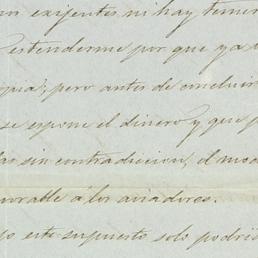 son exigentes ni hay temor
estenderme por que ya a
opia; pero antes de concluir
se espone el dinero y que p
las sin contradiccion, el mod
vorable á los aviadores.
jo este supuesto solo podria